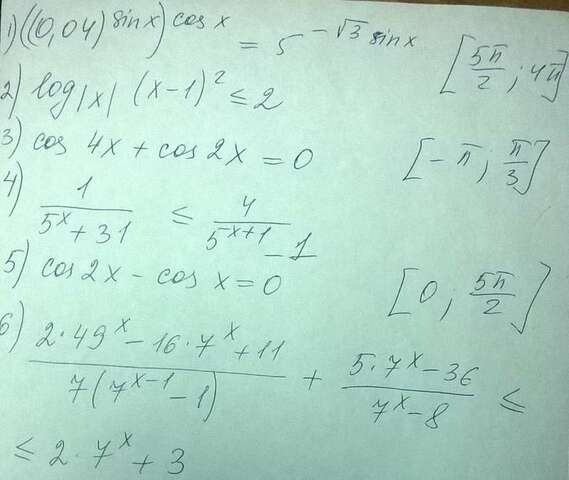 1) ((0,04)^{sin x})^{cos x} = 5^{-√3 sin x} [5π/2 ; 4π]
2) log_{|x|} (x-1)^2 ≤ 2
3) cos 4x + cos 2x = 0 [-π ; π/3]
4) 1/(5^x + 31) ≤ 4/(5^{x+1} - 1)
5) cos 2x - cos x = 0 [0 ; 5π/2]
6) (2·49^x - 16·7^x + 11)/(7(7^{x-1} - 1)) + (5·7^x - 36)/(7^x - 8) ≤
≤ 2·7^x + 3